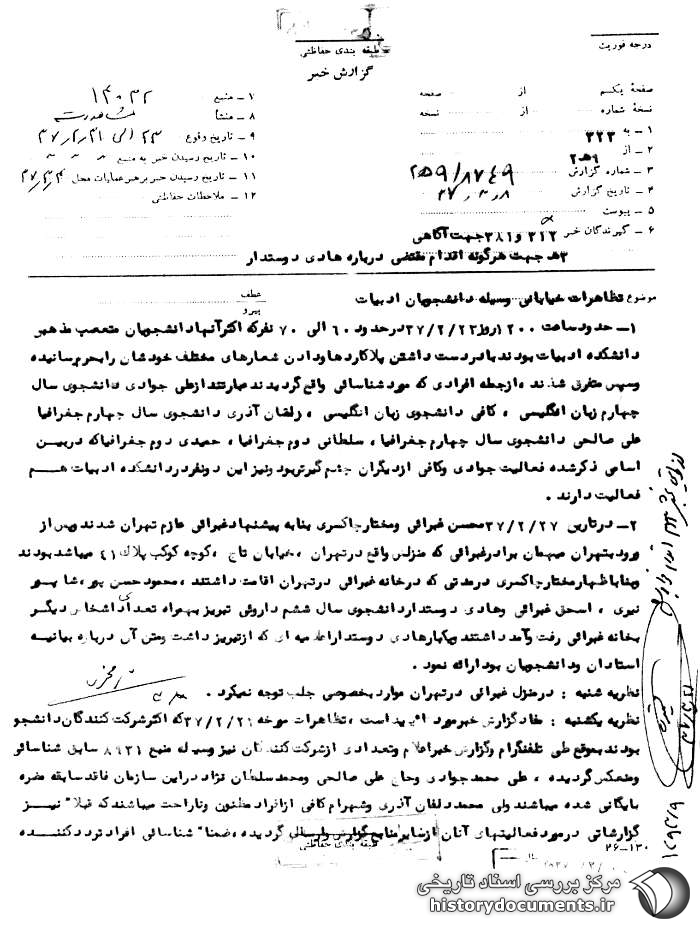 طبقه بندی حفاظتی
گزارش خبر
درجه فوریت
صفحهٔ یکم از صفحه
نسخهٔ شماره از نسخه
۱ - به ۳۲۳
۲ - از ۲ه۹
۳ - شماره گزارش ۲ه۹/۸۷۴۹
۴ - تاریخ گزارش ۳۷/۳/۸
۵ - پیوست
۶ - گیرندگان خبر ۳۱۲ و ۳۸۱ جهت آگاهی
۳ه جهت هرگونه اقدام مقتضی درباره هادی دوستدار
۷ - منبع ۱۴۰۳۲
۸ - منشأ مشاهدت
۹ - تاریخ وقوع ۲۳ الی ۳۷/۲/۳۱
۱۰ - تاریخ رسیدن خبر به منبع
۱۱ - تاریخ رسیدن خبر برهبر عملیات محل ۳۷/۳/۴
۱۲ - ملاحظات حفاظتی
موضوع تظاهرات خیابانی وسیله دانشجویان ادبیات
عطف
پیرو
۱- حدود ساعت ۱۲۰۰ روز ۳۷/۲/۲۳ در حدود ۶۰ الی ۷۰ نفر که اکثر آنها دانشجویان متعصب مذهبی
دانشکده ادبیات بودند با در دست داشتن پلاکاردها و دادن شعارهای مختلف خودشان را بحرم رسانیده
وسپس متفرق شدند ، از جمله افرادی که مورد شناسائی واقع گردیدند عبارتند از علی جوادی دانشجوی سال
چهارم زبان انگلیسی ، کافی دانشجوی زبان انگلیسی ، زلقان آذری دانشجوی سال چهارم جغرافیا
علی صالحی دانشجوی سال چهارم جغرافیا ، سلطانی دوم جغرافیا ، حمیدی دوم جغرافیا که در بین
اسامی ذکر شده فعالیت جوادی وکافی از دیگران چشم گیرتر بود ونیز این دونفر در دانشکده ادبیات هم
فعالیت دارند .
۲- در تاریخ ۳۷/۲/۲۷ محسن غبرائی ومختار چاکسری بنا به پیشنهاد غبرائی عازم تهران شدند وپس از
ورود بتهران میهمان برادر غبرائی که منزلش واقع در تهران ، خیابان تاج ، کوچه کوکب پلاک ۴۱ میباشد بودند
وبنا باظهار مختار چاکسری در مدتی که در خانه غبرائی در تهران اقامت داشتند ، محمود حسن پور ، شاپور
نیری ، اسحق غبرائی وهادی دوستدار دانشجوی سال ششم داروئی تبریز بهمراه تعدادی اشخاص دیگر
بخانه غبرائی رفت وآمد داشتند ویکبار هادی دوستدار اعلامیه ای که از تبریز داشت ومتن آن درباره بیانیه
استادان ودانشجویان بود ارائه نمود .
نظریه شنبه : در منزل غبرائی در تهران موارد بخصوصی جلب توجه نمیکرد .
نظریه یکشنبه : مفاد گزارش خبر مورد تایید است ، تظاهرات مورخه ۳۷/۲/۲۳ که اکثر شرکت کنندگان دانشجو
بودند بموقع طی تلفنگرام وگزارش خبر اعلام وتعدادی از شرکت کنندگان نیز وسیله منبع ۸۹۳۱ سابق شناسائی
ومنعکس گردیده ، علی محمد جوادی وحاج علی صالحی ومحمد سلطان نژاد در این سازمان فاقد سابقه مضره
بایگانی شده میباشند ولی محمد دلقان آذری وشهرام کافی از افراد مظنون وناراحت میباشند که قبلا" نیز
گزارشاتی در مورد فعالیتهای آنان از سایر منابع گزارش وارسالی گردیده ، ضمنا" شناسائی افراد تردد کننده
طبقه بندی حفاظتی
۲۶-۱۳۰
مرکز بررسی اسناد تاریخی
historydocuments.ir